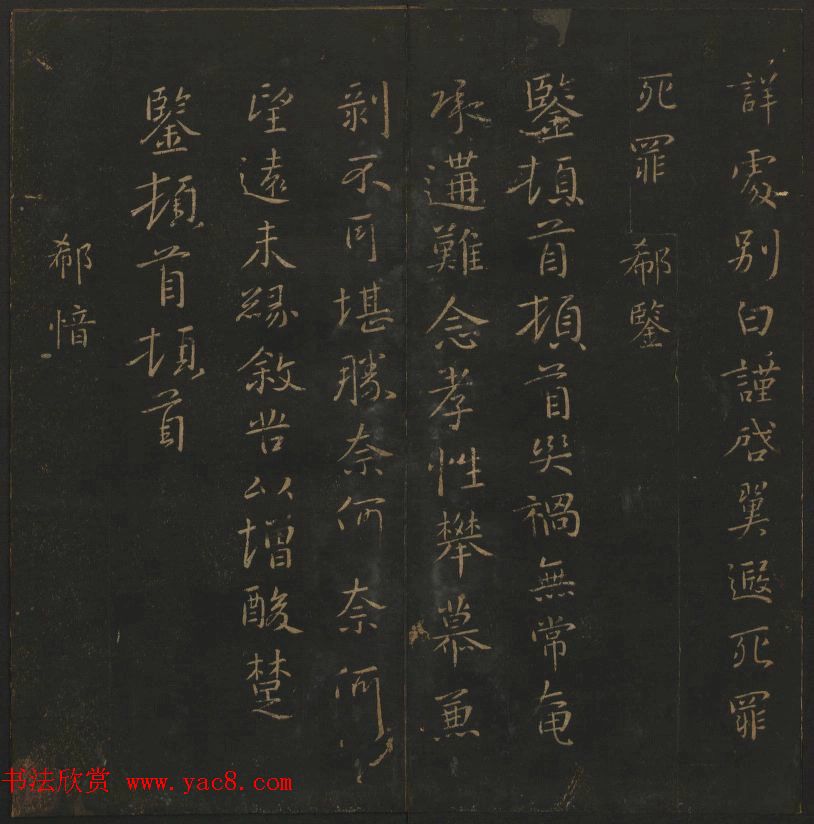 詳處別白謹啓翼遐死罪
死罪
郗鑒
鑒頓首頓首災禍無常奄
承遘難念孝性攀慕兼
剝不可堪勝奈何奈何
望遠未緣敘苦以增酸楚
鑒頓首頓首
郗愔
书法欣赏 www.yac8.com